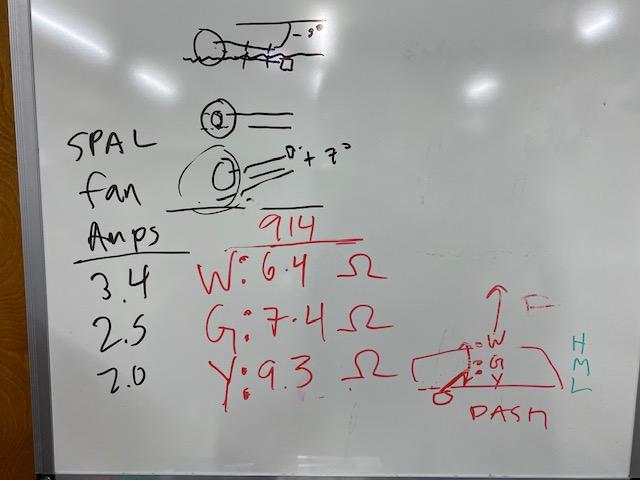 -9°
SPAL
0° + 7°
fan
Amps
914
3.4
W: 6.4 Ω
2.5
G: 7.4 Ω
2.0
Y: 9.3 Ω
F
W
H
G
M
Y
L
DASH